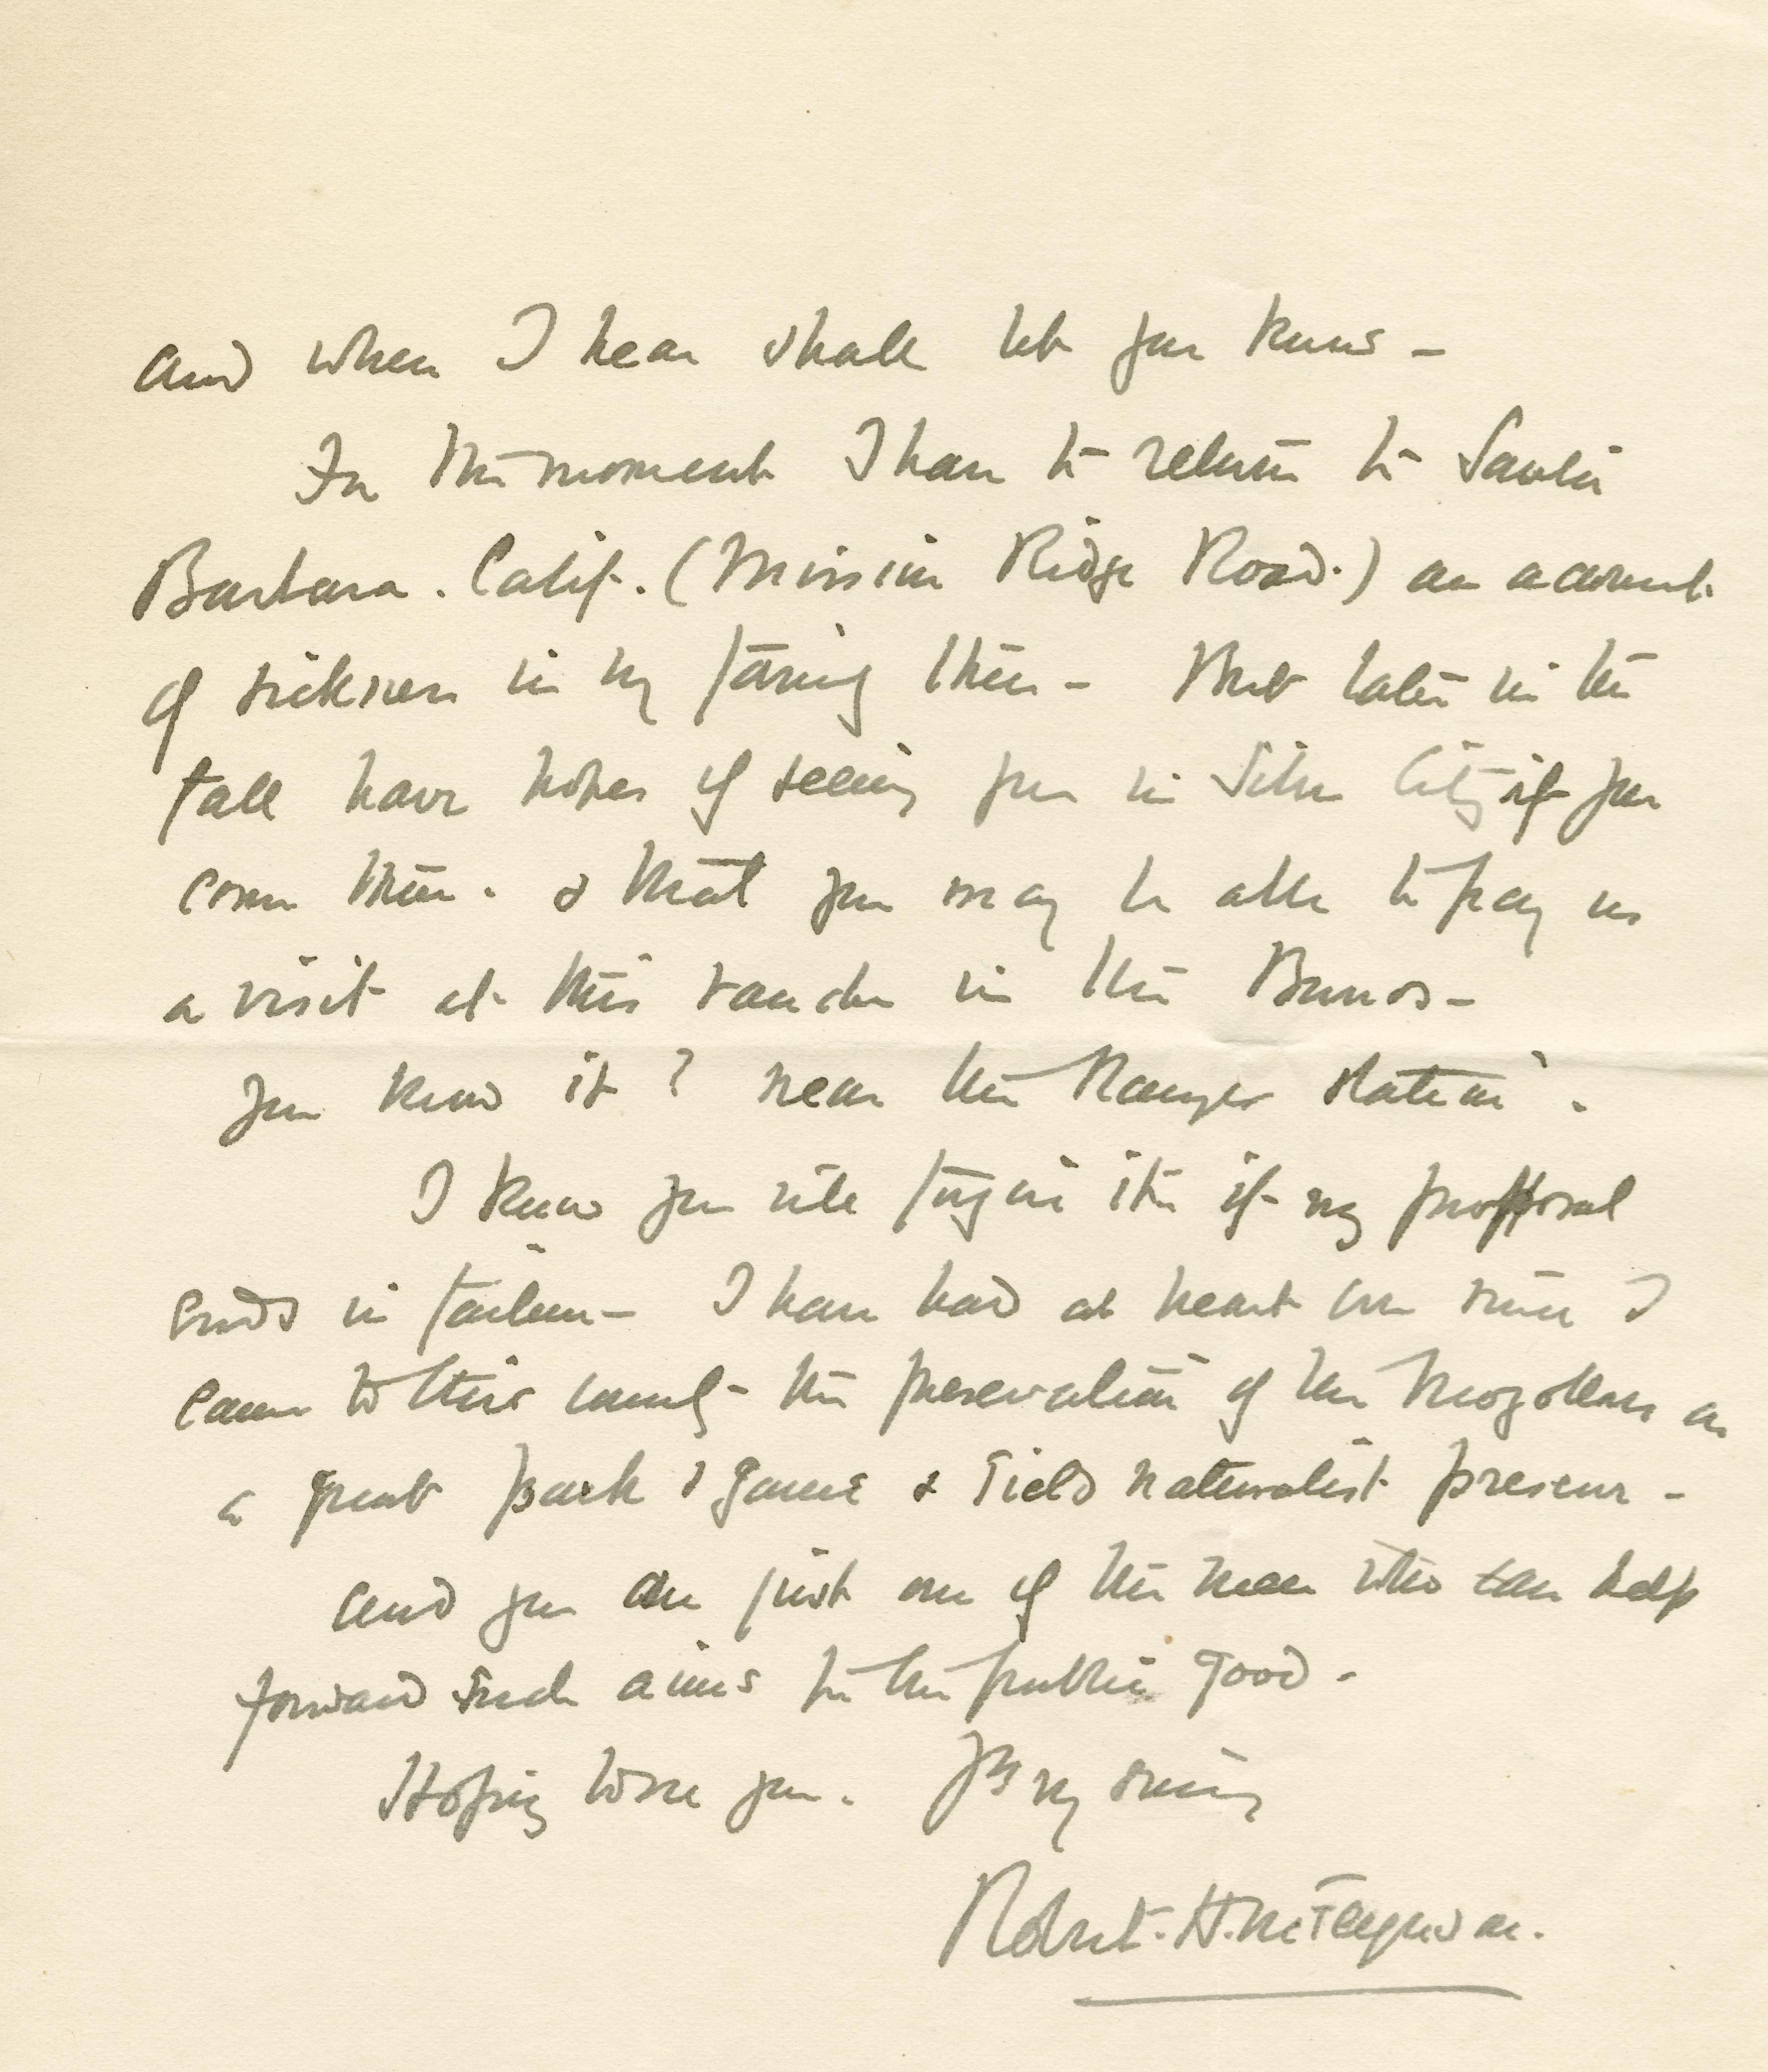 and when I hear shall let you know -
For the moment I have to return to Santa
Barbara. Calif. (Mission Ridge Road.) on account
of sickness in my family there - But later in the
fall have hopes of seeing you in Silver City if you
come there. & that you may be able to pay us
a visit at this ranch in the Burros -
you know it? near the Ranger station.
I know you will forgive it if my proposal
ends in failure - I have had at heart ever since I
came to this country the preservation of the Mogollons as
a great park & game & field naturalist preserve -
and you are just one of the men who can help
forward such aims for the public good.
Hoping to see you. Yrs very sincerely
Robert. H.